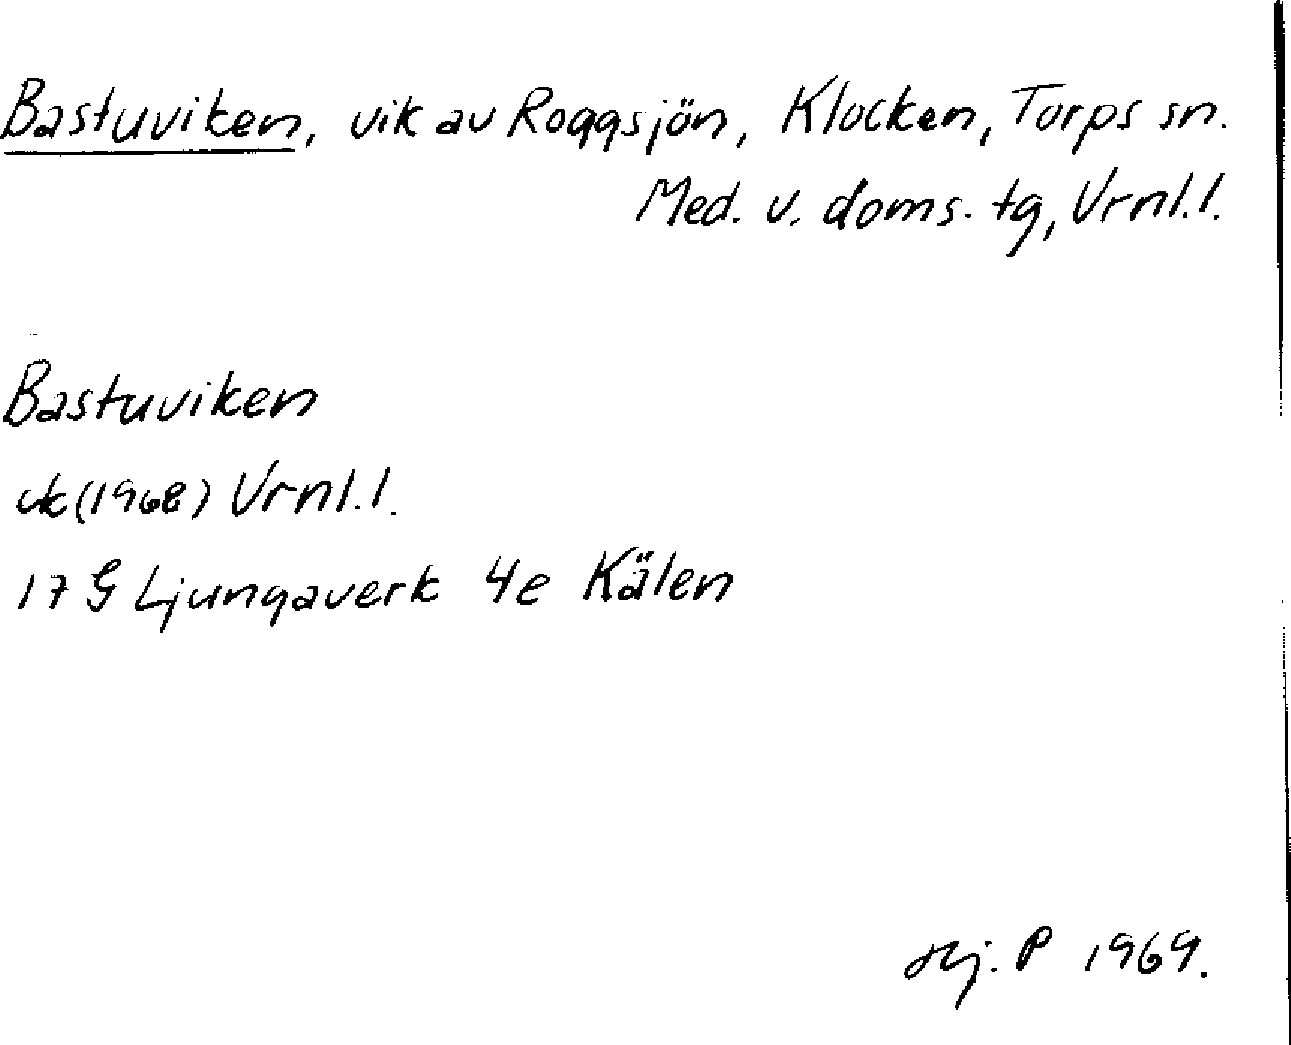 Bastuviken, vik av Roggsjön, Klocken, Torps sn.
Med. v. doms. tg, Vrnl.l.
Bastuviken
uk (1968) Vrnl.l.
17 G Ljungaverk 4e Kälen
Hj. P 1969.